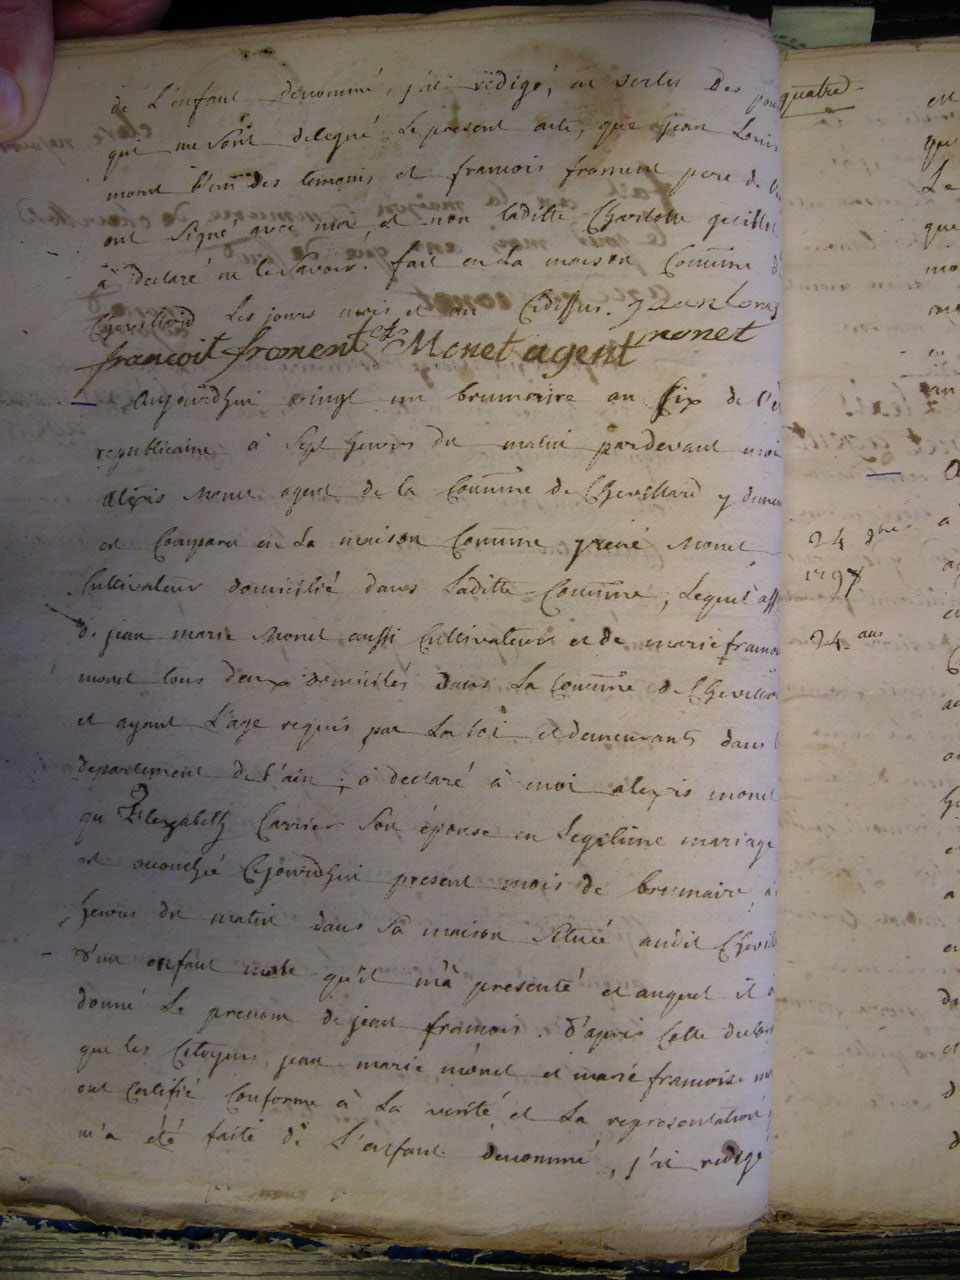 de L'enfant dénommé, j'ai rédigé, en vertu Des pou
qui me sont délégué Le présent acte, que jean Louis
monet l'un des temoins et francois froment pere de
ont signé avec moi, et non laditte Charlotte
à déclaré ne le savoir. fait en La maison Commune
Chevillard Les jours mois et an Cidessus. jean louis
françoit froment Monet agent monet
Aujourdhui vingt un brumaire an six de l'è
republicaine à sept heures du matin pardevant moi
alexis monet agent de la Commune de Chevillard y demeu
est Comparu en La maison Commune Monet
Cultivateur domicilié dans Laditte Commune, Lequel ass
de jean marie Monet aussi Cultivateur et de marie francoi
monet tous deux domiciliés dans La Commune de Chevilla
et ayant L'age requis par La loi et demeurants dans
departement de l'ain, à déclaré à moi alexis monet
qu Elizabeth Carrier son épouse en Legitime mariage
est accouchée Cejourdhui present mois de brumaire, à
heures du matin dans sa maison située audit Chevill
d'un enfant male qu'il m'à presenté et auquel il à
donné Le prenom de jean francois. D'après Cette declar
que les Citoyens jean marie monet et marie francoise mo
ont Certifié Conforme à La verité et La representation
m'a été faite de L'enfant denommé, j'ai redigé
quatre
24
1797
24 ans